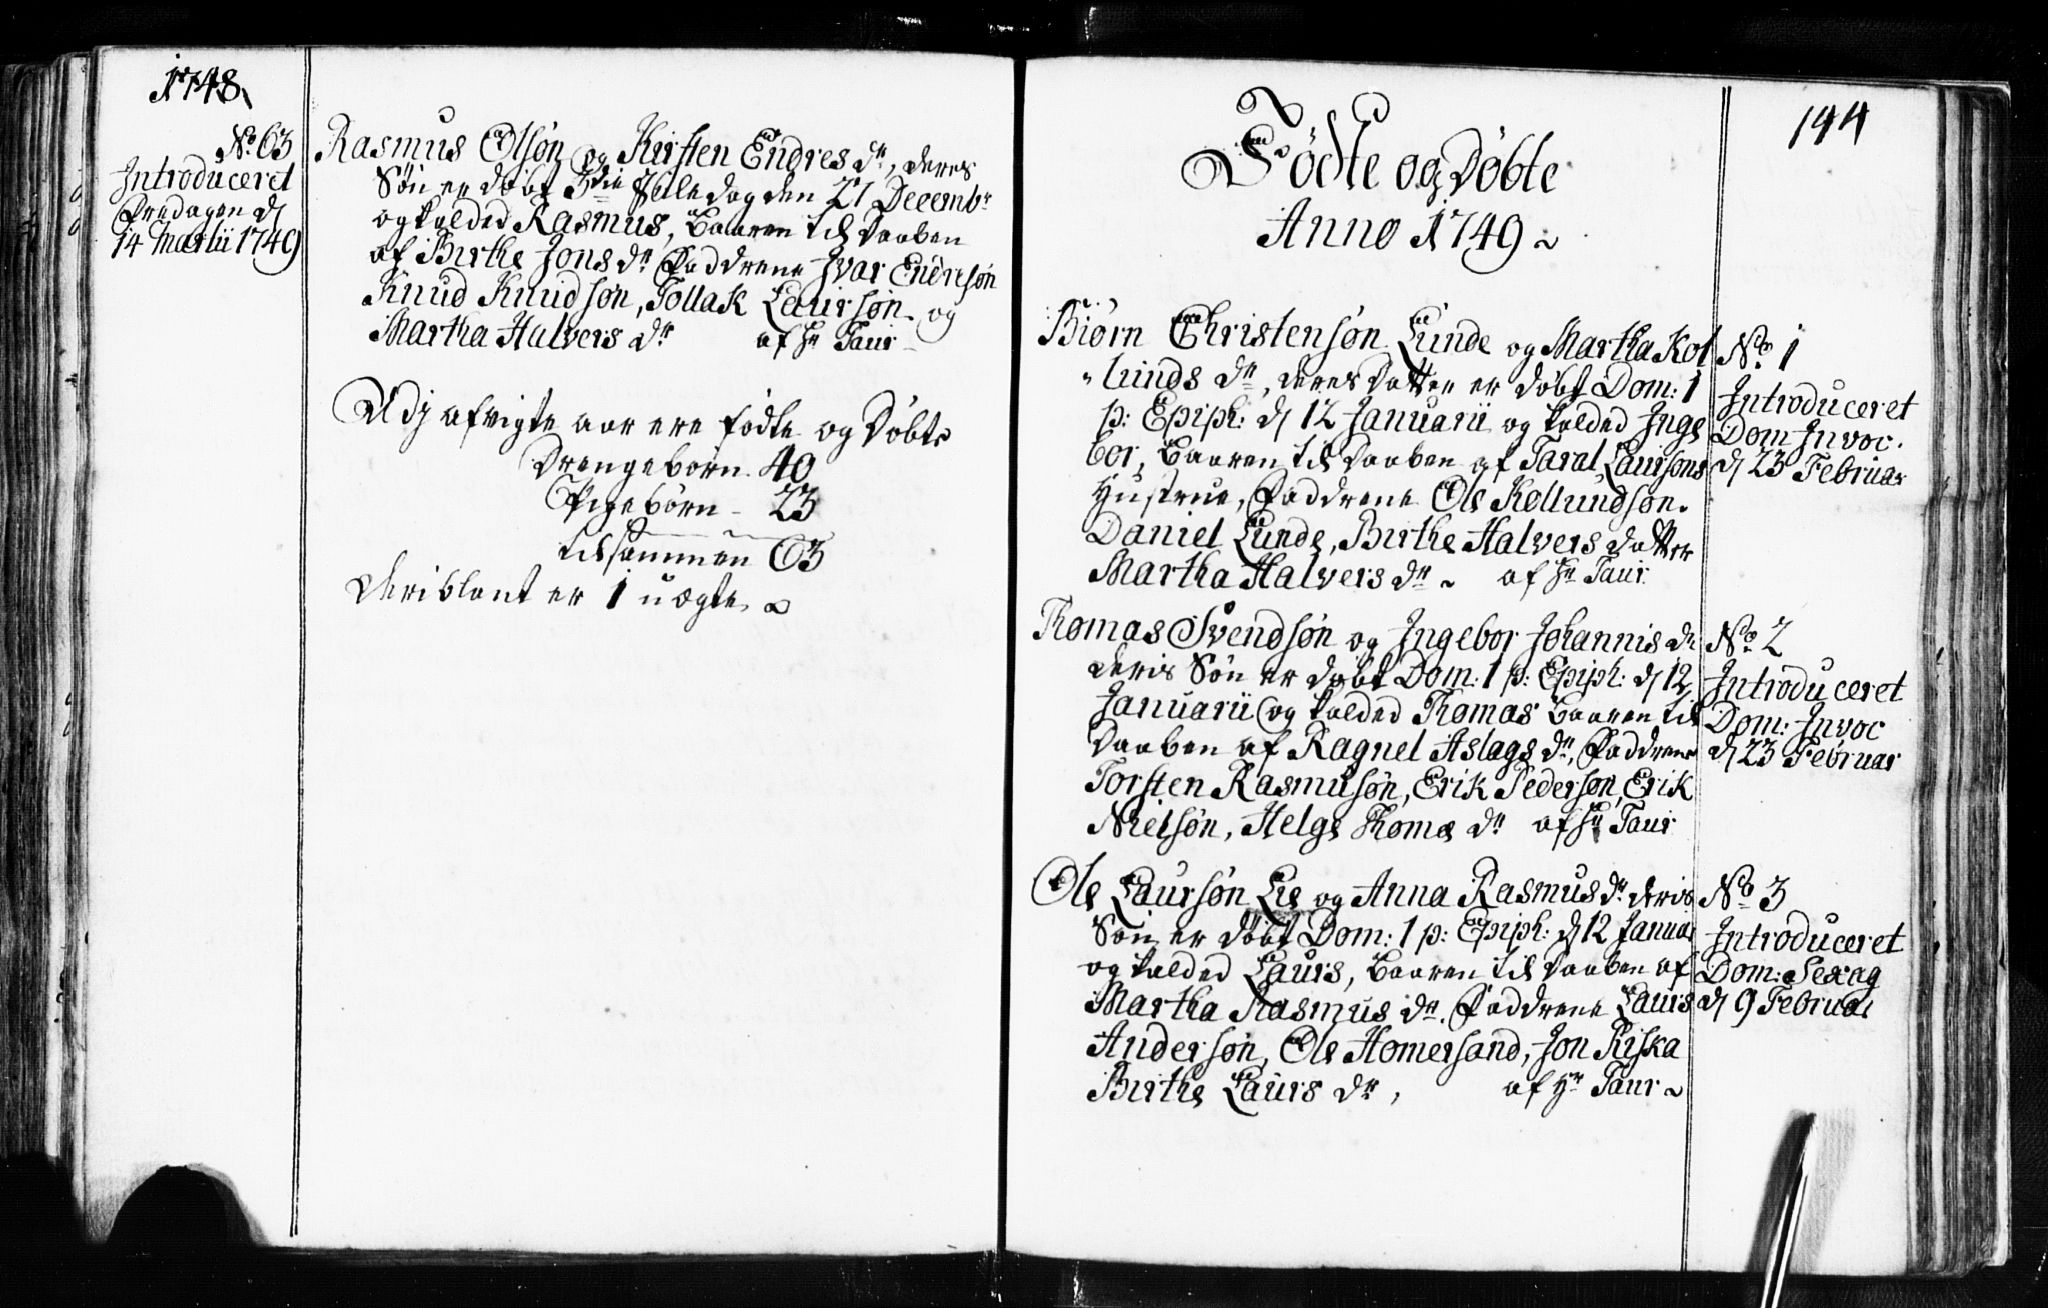 1748
No. 63
Introduceret
Fredagen d
14 Martii 1749
Rasmus Olsøn og Kirsten Endres dr, deres
Søn er døbt 3die Juledag den 27 Decembr
og kalded Rasmus, Baaren til Daaben
af Birthe Jons dr Faddrene Ivar Endresøn
Knud Knudsøn, Tollak Laursøn og
Martha Halvers dr af Hr Taur
Udj afvigte aar ere fødte og Døbte
Drengebørn 40
Pigebørn - 23
tilsammen 63
Deriblant er 1 uægte
144
Fødte og Døbte
Anno 1749
Biørn Christensøn Lunde og Martha Kol
lunds dr, deres Datter er døbt Dom: 1
p: Epiph: d 12 Januarii og kalded Inge
bor, Baaren til Daaben af Taral Laursøns
Hustrue, Faddrene Ole Kollundsøn.
Daniel Lunde, Birthe Halvers datter
Martha Halvers dr af Hr Taur
No. 1
Introduceret
Dom Invoc.
d 23 Februar
Thomas Svendsøn og Ingebor Johannis dr
deris Søn er døbt Dom: 1 p: Epiph: d 12
Januarii og kalded Thomas Baaren til
Daaben af Ragnel Aslags dr, Faddrene
Torsten Rasmusøn, Erik Pedersøn, Erik
Nielsøn, Helge Thomæ dr af Hr Taur
No. 2
Introduceret
Dom: Invoc
d 23 Februar
Ole Laursøn Lie og Anna Rasmus dr deris
Søn er døbt Dom: 1 p: Epiph: d 12 Januar
og kalded Laurs, Baaren til Daaben af
Martha Rasmus dr. Faddrene Laurs
Andersøn, Ole Homersand, Jon Riska
Birthe Laurs dr, af Hr Taur
No 3
Introduceret
Dom: Sexag
d 9 Februar